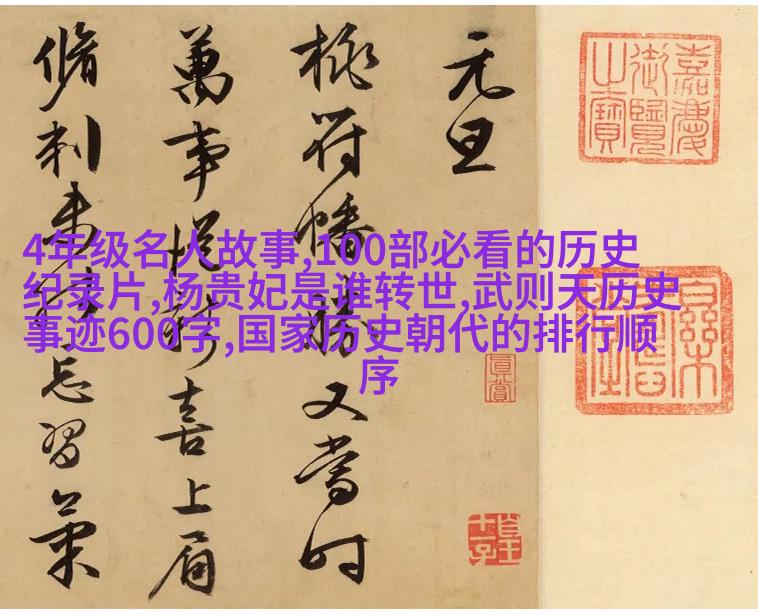 嘉慶御覽之寶
元旦
桃符幡勝又當時
萬事從新喜上眉
忘習
4年级名人故事,100部必看的历史
纪录片,杨贵妃是谁转世,武则天历史
事迹600字,国家历史朝代的排行顺
序